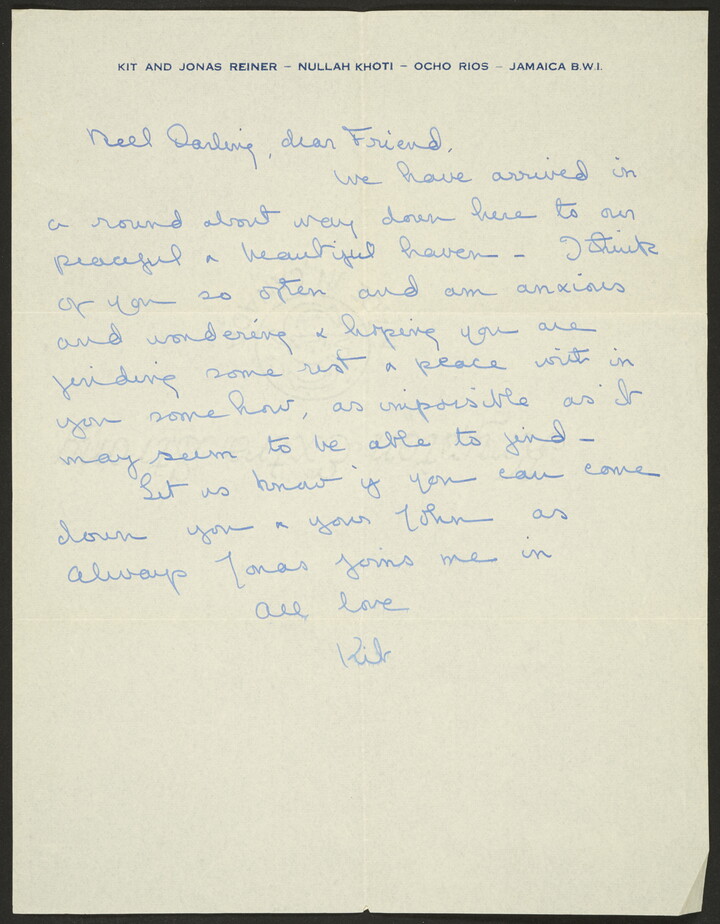 KIT AND JONAS REINER – NULLAH KHOTI – OCHO RIOS – JAMAICA B.W.I.
Neel Darling, dear Friend,
We have arrived in
a round about way down here to our
peaceful & beautiful haven – I think
of you so often and am anxious
and wondering & hoping you are
finding some rest & peace with in
you some how, as impossible as it
may seem to be able to find –
Let us know if you can come
down you & your John as
always Jonas joins me in
all love
Kit